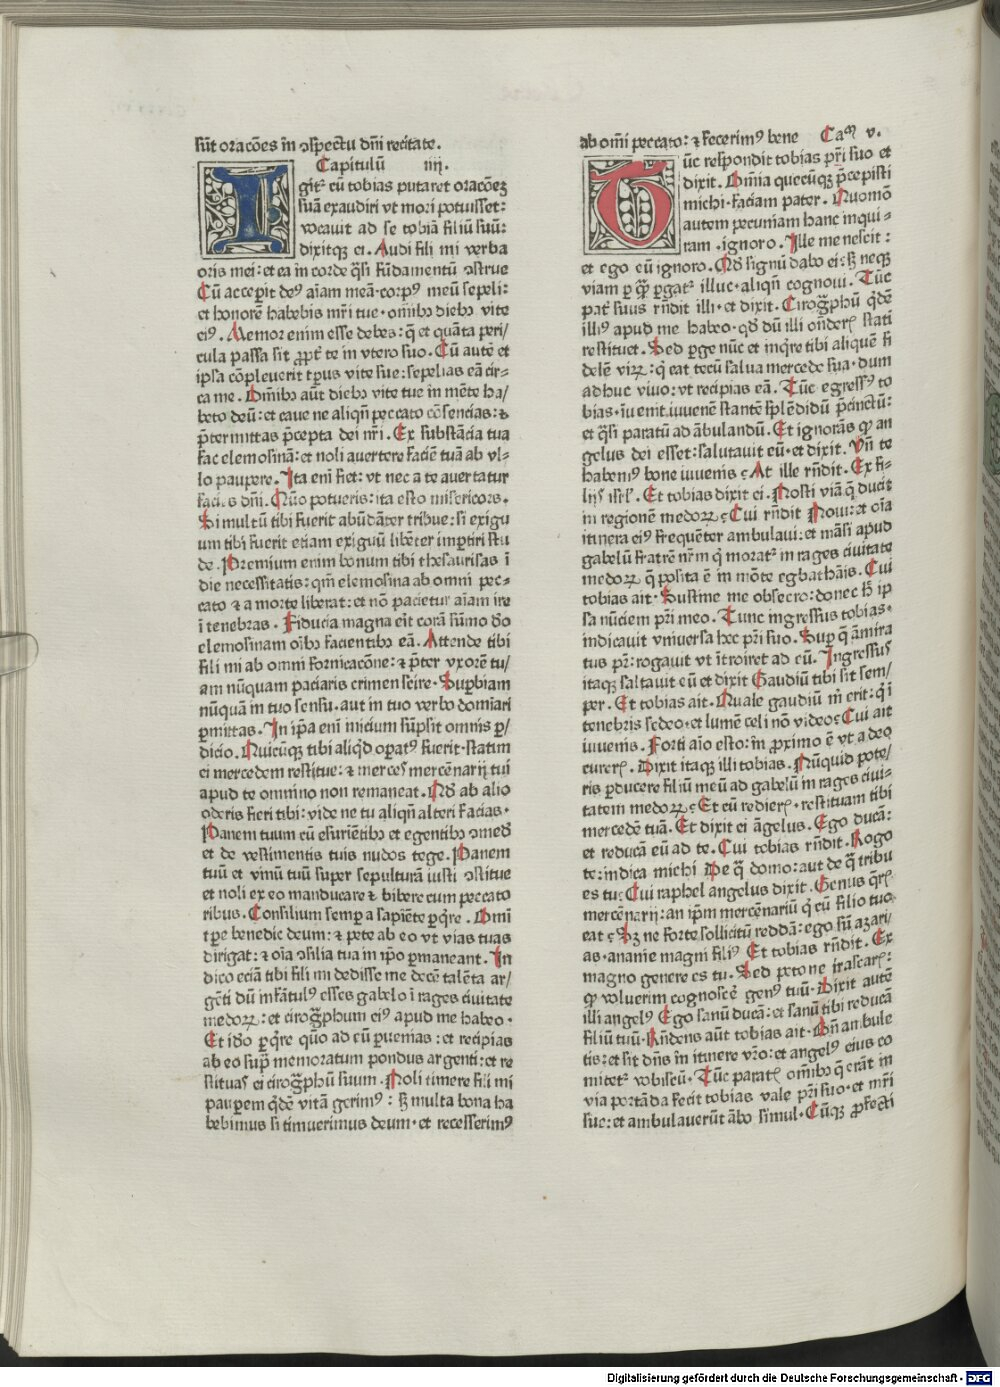 sūt oracōes in ↄspectu dn̄i recitate.
Capitulū iiij.
Igit᷑ cū tobias putaret oracōeꝫ
suā exaudiri vt mori potuisset:
vocauit ad se tobiā filiū suū:
dixitqꝫ ei. Audi fili mi verba
oris mei: et ea in corde q̄si fūdamentū ↄstrue
Cū acceperit deꝰ aīam meā·corpꝰ meū sepeli:
et honorē habebis mr̄i tue·om̄ibꝫ diebꝫ vite
eiꝰ. Memor enim esse debes: q̄ et quāta peri/
cula passa sit ꝓpt̄ te in vtero suo. Cū autē et
ipsa cōpleuerit tp̄us vite sue: sepelias eā cir⸗
ca me. Om̄ibꝫ aūt diebꝫ vite tue in mēte ha/
beto deū: et caue ne aliqn̄ peccato cōsencias: ⁊
p̄termittas p̄cepta dei nr̄i. Ex substācia tua
fac elemosinā: et noli auertere faciē tuā ab vl⸗
lo paupere. Ita eni fiet: vt nec a te auertatur
facies dn̄i. Quō potueris: ita esto misericors.
Si multū tibi fuerit abūdāter tribue: si exigu
um tibi fuerit etiam exiguū libēter impertiri stu
de. Premium enim bonum tibi thesaurisas ī
die necessitatis: qm̄ elemosina ab omni pec⸗
cato ⁊ a morte liberat: et nō pacietur aīam ire
ī tenebras. Fiducia magna eīt corā sūmo dō
elemosinam oībꝫ facientibꝫ eā. Attende tibi
fili mi ab omni fornicacōne: ⁊ p̄ter vxorē tu/
am nūquam paciaris crimen scire. Superbiam
nūquā in tuo sensu·aut in tuo verbo domīari
ꝑmittas. In ip̄a eni inicium sūpsit omnis ꝑ/
dicio. Quicūqꝫ tibi aliqd̄ oꝑatꝰ fuerit·statim
ei mercedem restitue: ⁊ merces mercēnarij tui
apud te omnino non remaneat. Qd̄ ab alio
oderis fieri tibi: vide ne tu aliqn̄ alteri facias.
Panem tuum cū esuriētibꝫ et egentibꝫ ↄmede
et de vestimentis tuis nudos tege. Panem
tuū et vinū tuū super sepulturā iusti ↄstitue
et noli ex eo manducare ⁊ bibere cum peccato
ribus. Consilium semper a sapiēte ꝑq̄re. Omī
tp̄e benedic deum: ⁊ pete ab eo vt vias tuas
dirigat: ⁊ oīa ↄsilia tua in ip̄o ꝑmaneant. In
dico eciā tibi fili mi dedisse me decē talēta ar/
gēti dū infātulꝰ esses gabelo ī rages ciuitate
medorꝝ: et cirog̃phum eiꝰ apud me habeo.
Et idō ꝑq̄re quō ad eū ꝑuenias: et recipias
ab eo sup̄ memoratum pondus argenti: et re
stituas ei cirog̃phū suum. Noli timere fili mi
pauꝑem q̄dē vitā gerimꝰ: sꝫ multa bona ha
bebimus si timuerimus deum·et recesserimꝰ
ab om̄i peccato: ⁊ fecerimꝰ bene Caᵐ v.
Tūc respondit tobias pr̄i suo et
dixit. Om̄ia quecūqꝫ p̄cepisti
michi·faciam pater. Quomō
autem pecuniam hanc inqui⸗
ram·ignoro. Ille me nescit:
et ego eū ignoro. Qd̄ signū dabo ei: sꝫ neqꝫ
viam ꝑ q̄ꝫ ꝑgat᷑ illuc·aliqn̄ cognoui. Tūc
pat̄ suus rn̄dit illi·et dixit. Cirog̃phū q̄dē
illiꝰ apud me habeo·qd̄ dū illi on̄derꝭ statī
restituet. Sed ꝑge nūc et inq̄re tibi aliquē fi
delē virꝝ: q̄ eat tecū salua mercede sua·dum
adhuc viuo: vt recipias eā. Tūc egressꝰ to
bias·īuenit iuuenē stantē splēdidū p̄cinctū:
et q̄si paratū ad ābulandū. Et ignorās ꝙ an
gelus dei esset: salutauit eū·et dixit. Vn̄ te
habemꝰ bone iuuenis ? At ille rn̄dit. Ex fi⸗
lijs isrl̄. Et tobias dixit ei. Nosti viā q̄ ducit
in regionē medorꝝ ? Cui rn̄dit Noui: et oīa
itinera eiꝰ frequēter ambulaui: et māsi apud
gabelū fratrē nr̄m q̇ morat᷑ in rages ciuitate
medorꝝ q̄ posita ē in mōte egbathāis. Cui
tobias ait. Sustine me obsecro: donec h̄ ip
sa nūciem pr̄i meo. Tunc ingressus tobias.
indicauit vniuersa hec pr̄i suo. Suꝑ q̄ āmira
tus pr̄: rogauit vt ītroiret ad eū. Ingressus
itaqꝫ saltauit eū et dixit Gaudiū tibi sit sem/
per. Et tobias ait. Quale gaudiū m̄ erit: q̇ ī
tenebris sedeo·et lumē celi nō video ? Cui ait
iuuenis. Forti aīo esto: in ꝓximo ē vt a deo
curerꝭ. Dixit itaqꝫ illi tobias. Nūquid pote/
ris ꝑducere filiū meū ad gabelū in rages ciui/
tatem medorꝝ ? Et cū redierꝭ·restituam tibi
mercedē tuā. Et dixit ei āgelus. Ego ducā:
et reducā eū ad te. Cui tobias rn̄dit. Rogo
te: indica michi De q̄ domo: aut de q̄ tribu
es tu. Cui raphel angelus dixit. Genus q̄rꝭ
mercēnarij: an ip̄m mercēnariū q̇ cū filio tuo
eat ? Sꝫ ne forte sollicitū reddā: ego sū azari/
as·ananie magni filiꝰ Et tobias rn̄dit. Ex
magno genere es tu. Sed peto ne irascarꝭ:
ꝙ voluerim cognoscē genꝰ tuū. Dixit autē
illi angelꝰ Ego sanū ducā: et sanū tibi reducā
filiū tuū. Rn̄dens aūt tobias ait. Bn̄ ambule
tis: et sit dn̄s in itinere vr̄o: et angelꝰ eius co
mitet᷑ vobiscū. Tūc paratꝭ om̄ibꝫ q̄ erāt in
via portāda fecit tobias vale pr̄i suo·et mr̄i
sue: et ambulauerūt ābo simul. Cūqꝫ ꝓfecti
Digitalisierung gefördert durch die Deutsche Forschungsgemeinschaft - DFG